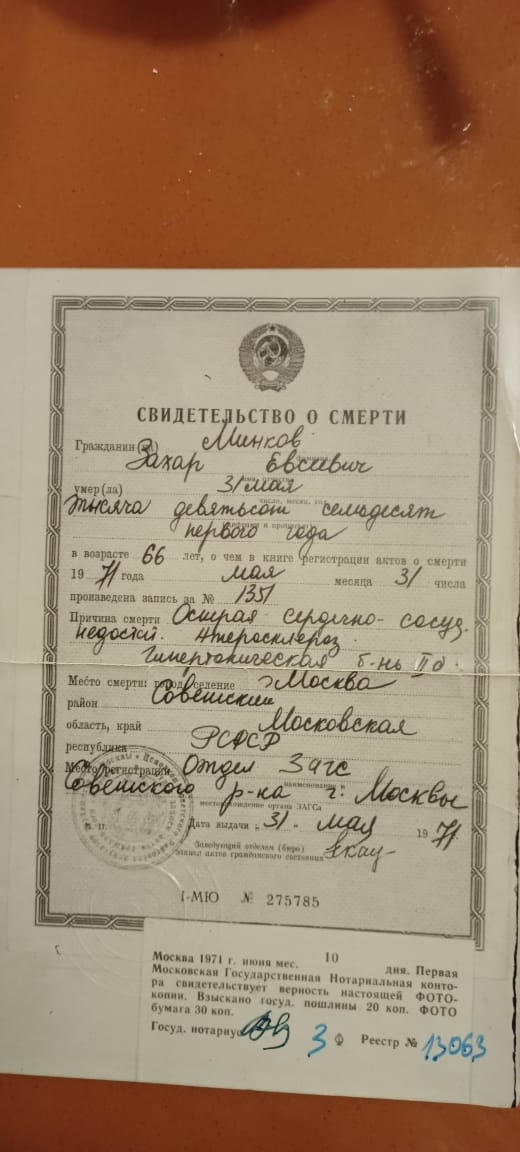 СВИДЕТЕЛЬСТВО О СМЕРТИ
Гражданин (ка) Минков
Захар Евсеевич
умер(ла) 31 мая
число, месяц, год
тысяча девятьсот семьдесят
первого года
в возрасте 66 лет, о чем в книге регистрации актов о смерти
19 71 года мая месяца 31 числа
произведена запись за № 1351
Причина смерти Острая сердечно-сосуд.
недостат. Атеросклероз.
Гипертоническая б-нь II
Место смерти: город, селение г. Москва
район Советский
область, край Московская
республика РСФСР
Место регистрации Отдел Загс
наименование и
Советского р-на г. Москвы
местонахождение органа ЗАГСа
Дата выдачи „31“ мая 1971
М. П.
Заведующий отделом (бюро)
записи актов гражданского состояния
I-МЮ № 275785
Москва 1971 г. июня мес. 10 дня. Первая
Московская Государственная Нотариальная конто-
ра свидетельствует верность настоящей ФОТО-
копии. Взыскано госуд. пошлины 20 коп. ФОТО
бумага 30 коп.
Госуд. нотариус 3 Ф Реестр № 13063